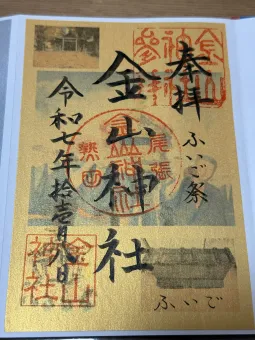 奉拝
ふいご祭
金山神社
令和七年拾壱月八日
尾張
熱田
金山
神社
ふいご